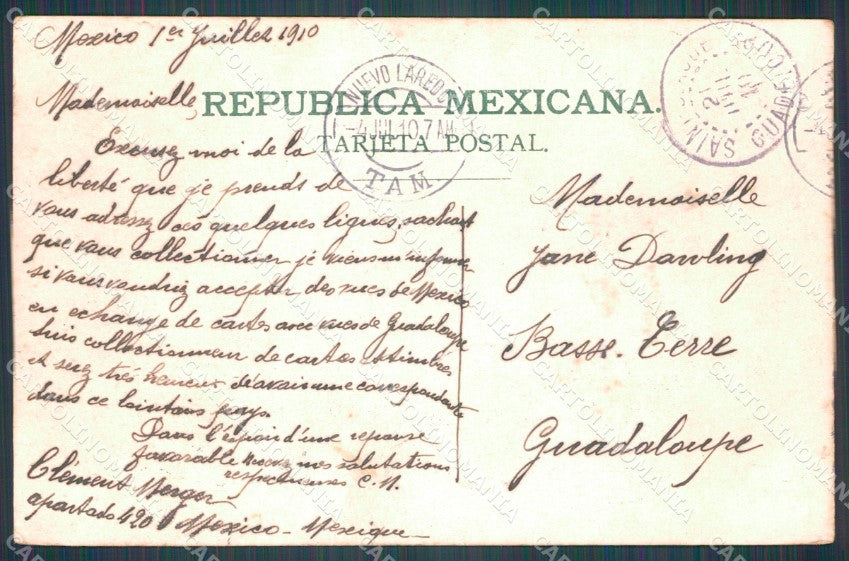 Mexico 1er Juillet 1910
Mademoiselle,
REPUBLICA MEXICANA.
TARJETA POSTAL.
NUEVO LAREDO
-4 JUL 10. 7 AM
TAM
GUAD
Excusez moi de la
liberté que je prends de
vous adresser ces quelques lignes, sachant
que vous collectionner je viens m'informer
si vous voudriez accepter des vues de Mexico
en echange de cartes avec vues de Guadaloupe
Suis collectionneur de cartes et timbres
et serez très heureux d'avoir une correspondante
dans ce lointain pays.
Dans l'espoir d'une reponse
favorable nos salutations
respectueuses C. M.
Clément Merger
apartado 420 Mexico - Mexique -
Mademoiselle
Jane Dawling
Basse-Terre
Guadaloupe
CARTOLINOMANIA